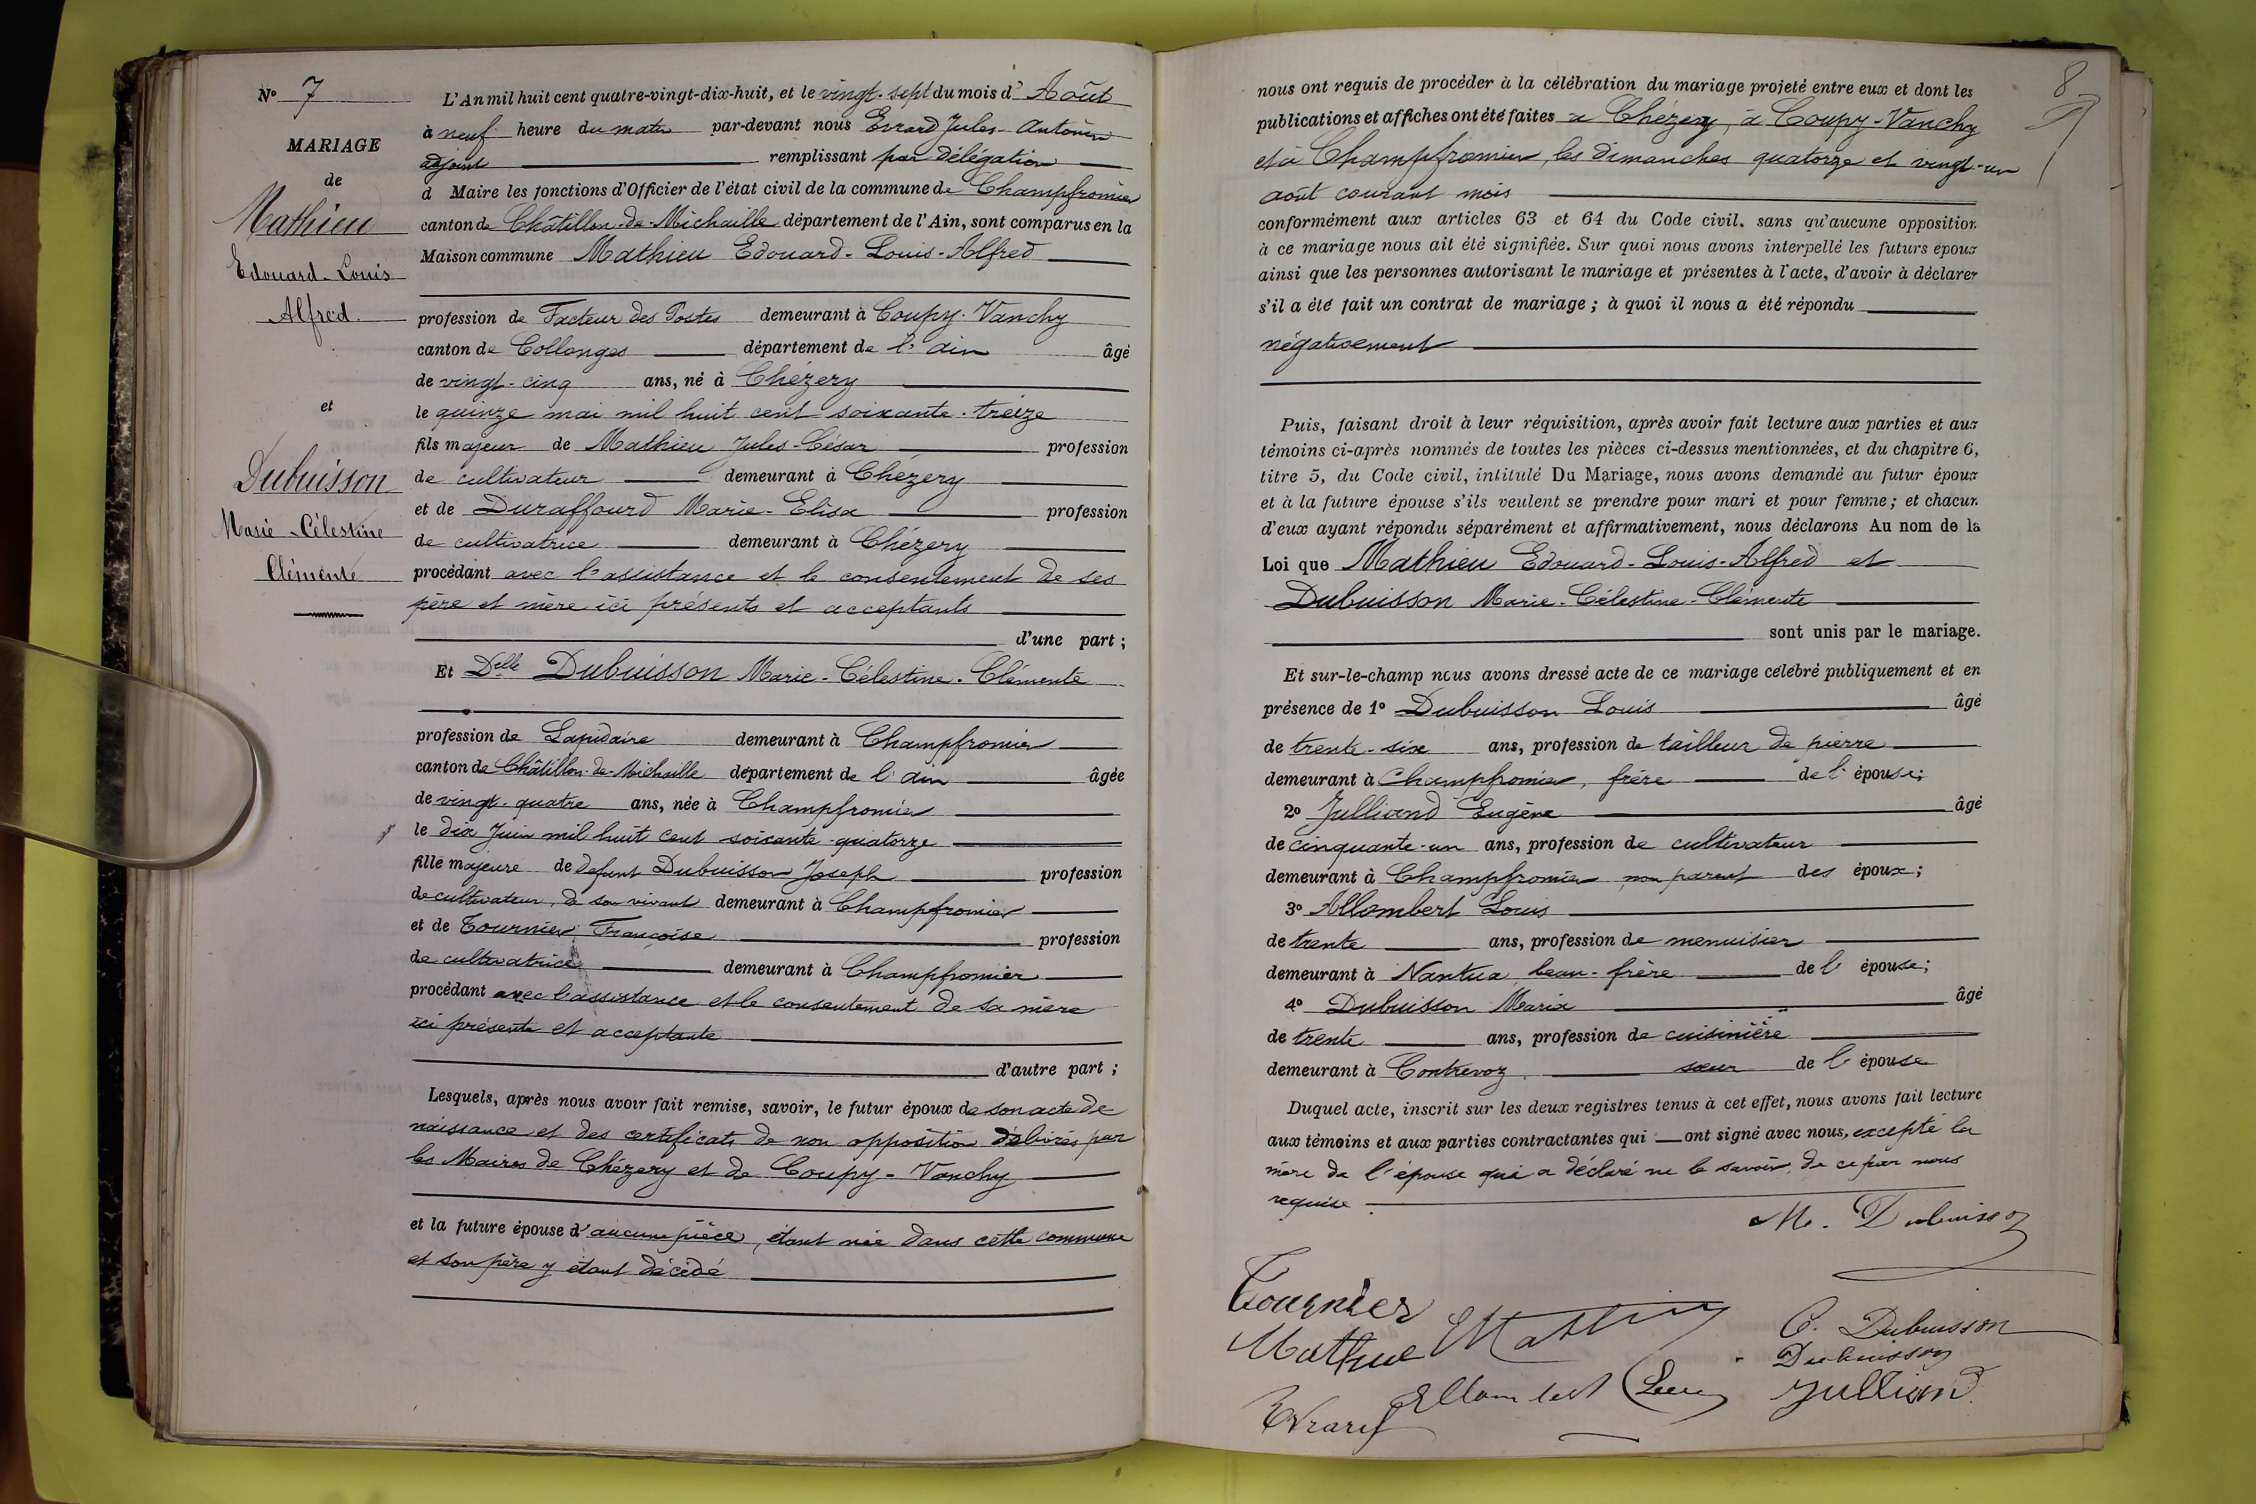 N° 7
MARIAGE
de
Mathieu
Edouard-Louis
Alfred
et
Dubuisson
Marie-Célestine
Clémente
L'An mil huit cent quatre-vingt-dix-huit, et le vingt-sept du mois d'Août
à neuf heure du matin par-devant nous Evrard Jules-Antoine
adjoint remplissant par délégation
d Maire les fonctions d'Officier de l'état civil de la commune de Champfromier
canton de Châtillon-de-Michaille département de l'Ain, sont comparus en la
Maison commune Mathieu Edouard-Louis-Alfred
profession de Facteur des Postes demeurant à Coupy-Vanchy
canton de Collonges département de l'ain âgé
de vingt-cinq ans, né à Chézery
le quinze mai mil huit cent soixante-treize
fils majeur de Mathieu Jules-César profession
de cultivateur demeurant à Chézery
et de Duraffourd Marie-Elisa profession
de cultivatrice demeurant à Chézery
procédant avec l'assistance et le consentement de ses
père et mère ici présents et acceptants
d'une part ;
Et Delle Dubuisson Marie-Célestine-Clémente
profession de Lapidaire demeurant à Champfromier
canton de Châtillon-de-Michaille département de l'ain âgée
de vingt-quatre ans, née à Champfromier
le dix Juin mil huit cent soixante-quatorze
fille majeure de defunt Dubuisson Joseph profession
de cultivateur, de son vivant demeurant à Champfromier
et de Tournier Françoise profession
de cultivatrice demeurant à Champfromier
procédant avec l'assistance et le consentement de sa mère
ici présente et acceptante
d'autre part ;
Lesquels, après nous avoir fait remise, savoir, le futur époux de son acte de
naissance et des certificats de non opposition délivrés par
les Maires de Chézery et de Coupy-Vanchy
et la future épouse d'aucune pièce, étant née dans cette commune
et son père y étant décédé
8
nous ont requis de procéder à la célébration du mariage projeté entre eux et dont les
publications et affiches ont été faites à Chézery, à Coupy-Vanchy
et à Champfromier, les dimanches quatorze et vingt-un
août courant mois
conformément aux articles 63 et 64 du Code civil, sans qu'aucune opposition
à ce mariage nous ait été signifiée. Sur quoi nous avons interpellé les futurs époux
ainsi que les personnes autorisant le mariage et présentes à l'acte, d'avoir à déclarer
s'il a été fait un contrat de mariage ; à quoi il nous a été répondu
négativement
Puis, faisant droit à leur réquisition, après avoir fait lecture aux parties et aux
témoins ci-après nommés de toutes les pièces ci-dessus mentionnées, et du chapitre 6,
titre 5, du Code civil, intitulé Du Mariage, nous avons demandé au futur époux
et à la future épouse s'ils veulent se prendre pour mari et pour femme ; et chacun
d'eux ayant répondu séparément et affirmativement, nous déclarons Au nom de la
Loi que Mathieu Edouard-Louis-Alfred et
Dubuisson Marie-Célestine-Clémente
sont unis par le mariage.
Et sur-le-champ nous avons dressé acte de ce mariage célébré publiquement et en
présence de 1° Dubuisson Louis âgé
de trente-six ans, profession de tailleur de pierre
demeurant à Champfromier, frère de l'épouse ;
2° Julliand Eugène âgé
de cinquante-un ans, profession de cultivateur
demeurant à Champfromier non parent des époux ;
3° Allombert Louis
de trente ans, profession de menuisier
demeurant à Nantua, beau-frère de l'épouse ;
4° Dubuisson Maria âgé
de trente ans, profession de cuisinière
demeurant à Contrevoz, sœur de l'épouse
Duquel acte, inscrit sur les deux registres tenus à cet effet, nous avons fait lecture
aux témoins et aux parties contractantes qui ont signé avec nous, excepté la
mère de l'épouse qui a déclaré ne le savoir, de ce par nous
requise
M. Dubuisson
Tournier
Mathieu E Mathieu C. Dubuisson
Dubuisson
Allombert Louis Julliand
Evrard